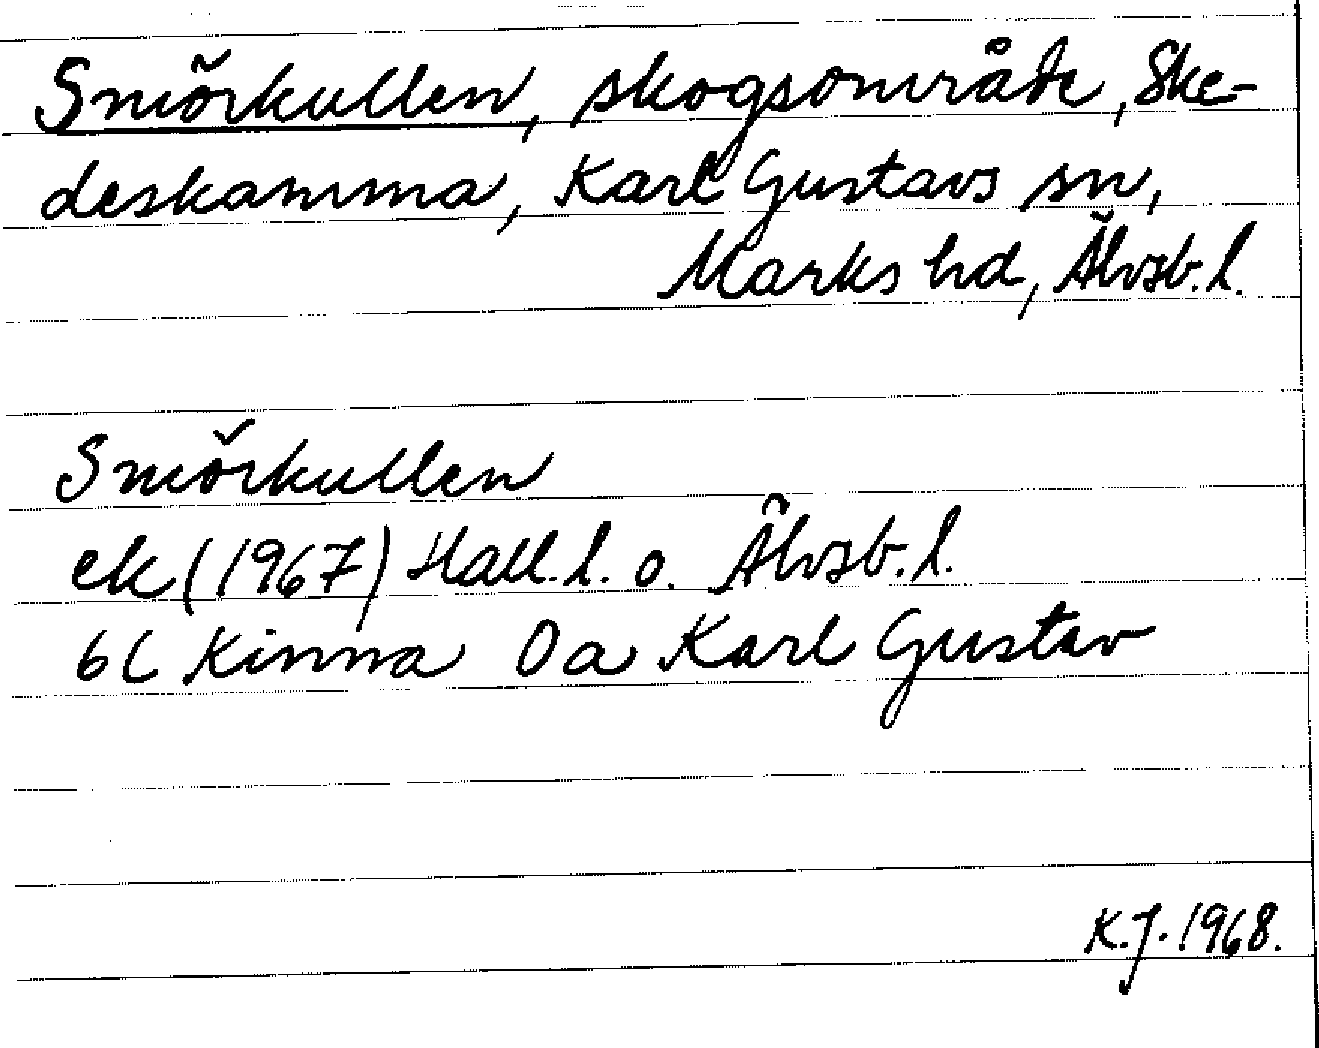 Smörkullen, skogsområde, Ske-
deskamma, Karl Gustavs sn,
Marks hd, Älvsb. l.
Smörkullen
ek (1967) Hall. l. o. Älvsb. l.
6C Kinna 0a Karl Gustav
K.J. 1968.